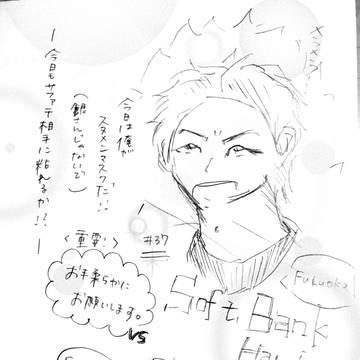 今日は俺が
スタメンマスクだ!!
(銀さんじゃないで)
—今日もサファテ相手に粘れるか!?—
<重要!>
#37
お手柔らかに
お願いします。
VS
Fukuoka!
Soft Bank
Haw